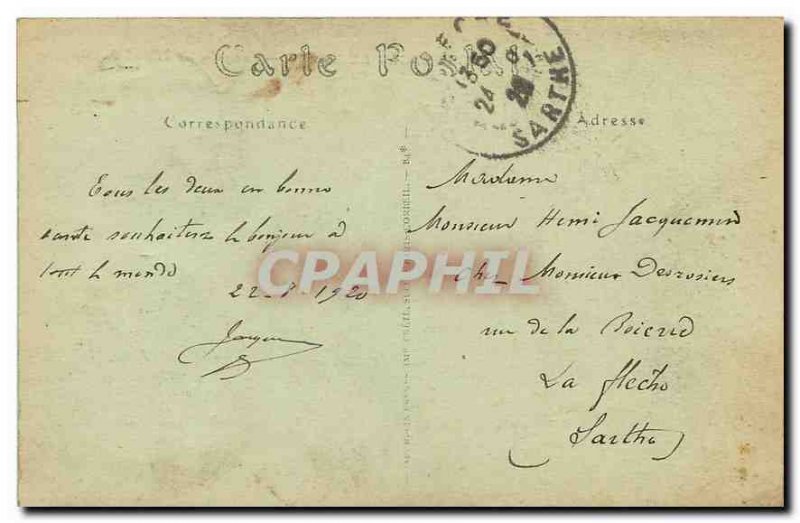 Carte Postale
Correspondance
Adresse
SARTHE
24
Tous les deux en bonne
santé souhaitons le bonjour à
tout le monde
22-8-1920
Madame
Monsieur Henri Jacquemin
chez Monsieur Desrosiers
rue de la
La Flèche
(Sarthe)
CPAPHIL